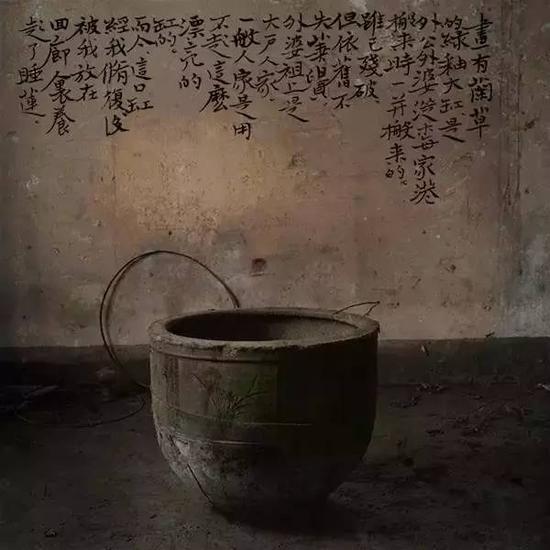 畫有蘭草
的綠釉大缸是
外公外婆從李家港
搬來時一并搬來的。
雖已殘破
但依舊不
失葉湯,
外婆祖上是
大戶人家,
一般人家是用
不起這麼
漂亮的
缸的。
而今這口缸
經我脩復後
被我放在
回廊裏養
起了睡蓮.